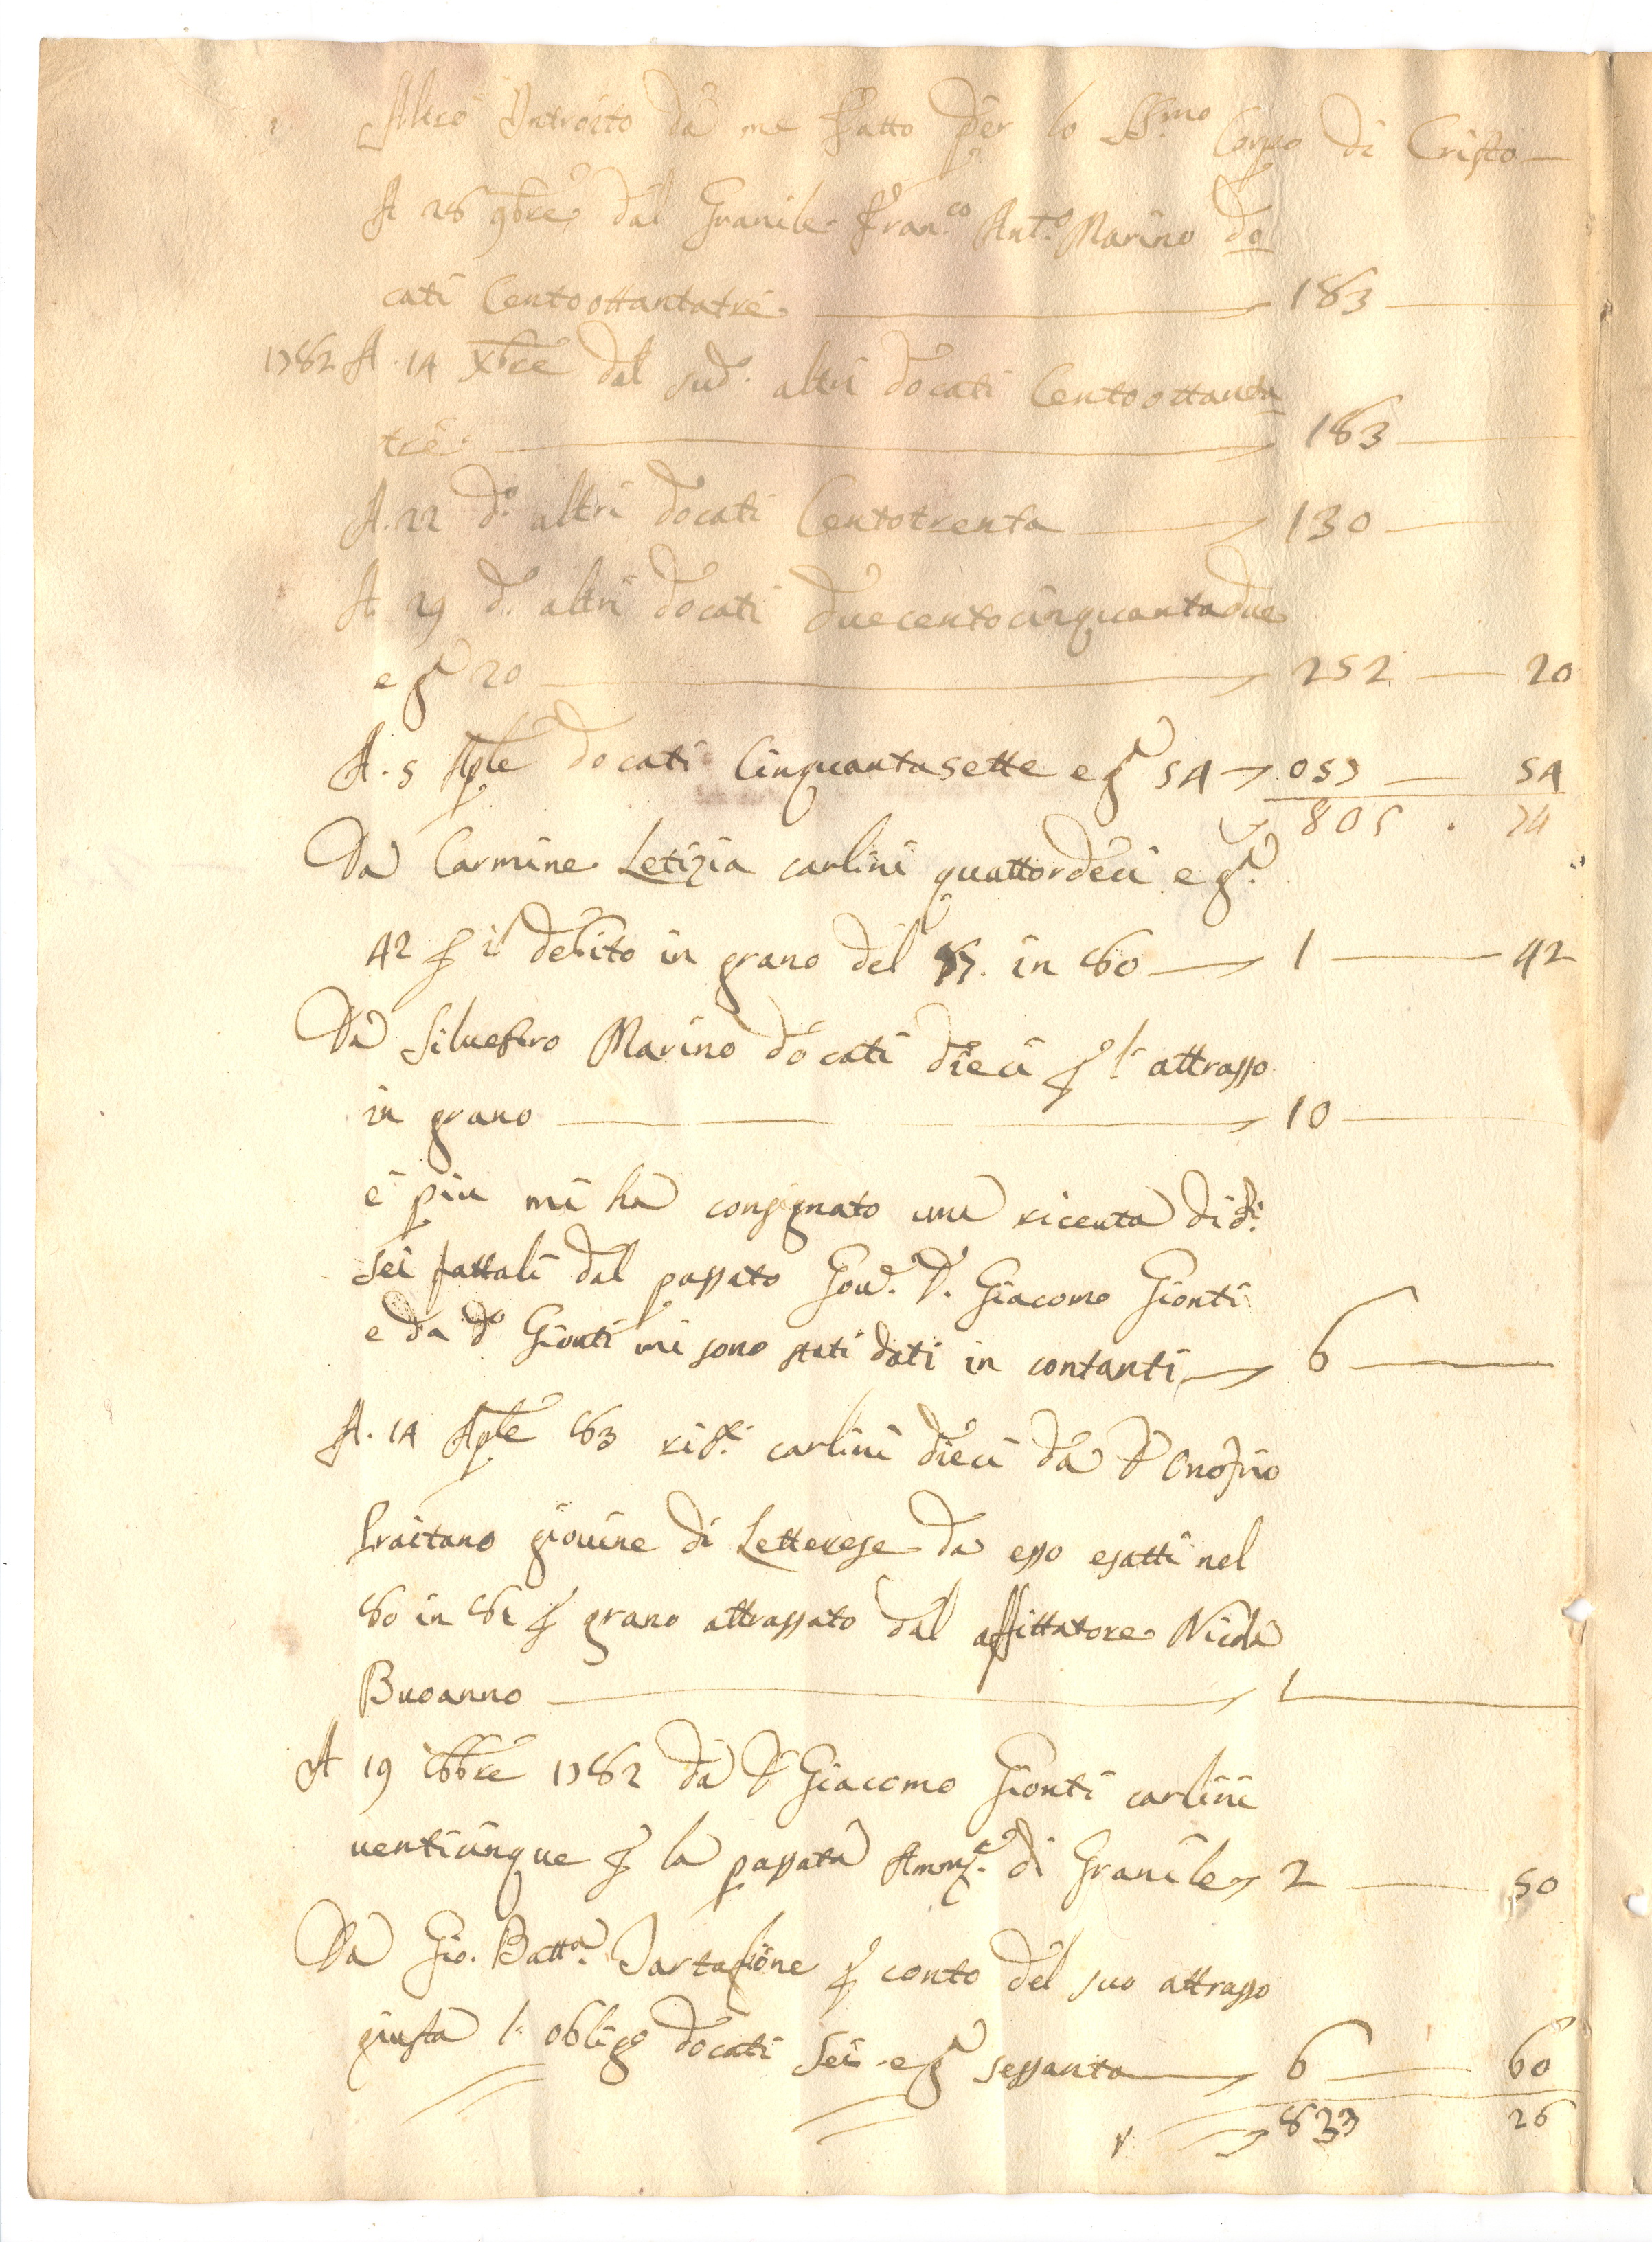 Altro Introito da me fatto per lo SS.mo Corpo di Cristo —
A 28 9bre dal Granile Fran.co Ant.o Marino do
cati Centoottantatre — 183 —
1782 A. 14 Xbre dal sud.o altri docati Centoottanta
tre — 183 —
A. 22 d.o altri docati Centotrenta — 130 —
A 29 d.o altri docati duecentocinquantadue
e g.a 20 — 252 — 20
A. 5 Aple docati Cinquantasette e g.a 54 — 057 — 54
805 . 74
Da Carmine Letizia carlini quattordeci e g.a
42 p il debito in grano del 87. in 80 — 1 — 42
Da Silvestro Marino docati dieci p l'attrasso
in grano — 10 —
e piu mi ha consignato una riceuta di d.i
sei fattali dal passato Gov.e D. Giacomo Gionti
e da d.o Gionti mi sono stati dati in contanti — 6 —
A. 14 Aple 83 carlini dieci da D. Onofrio
giovine di Letterese da esso esatti nel
80 in 81 p grano attrassato dal affittatore Nicola
Buoanno — 1 —
A 19 8bbre 1782 da D. Giacomo Gionti carlini
venticinque p la passata Amm.e di Granile — 2 — 50
Da Gio. Batt.a Tartaglione p conto del suo attrasso
giusta l' obligo docati sei e g.a sessanta — 6 — 60
833 26